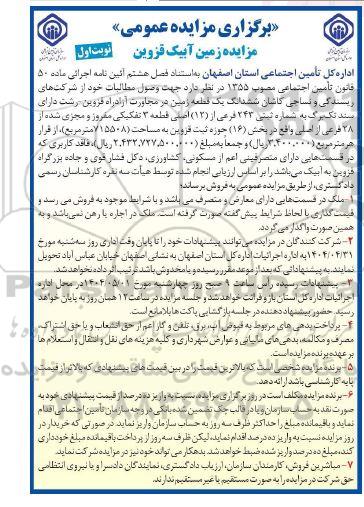 «برگزاری مزایده عمومی»
مزایده زمین آبیک قزوین
نوبت اول
اداره کل تأمین اجتماعی استان اصفهان به‌استناد فصل هشتم آئین نامه اجرائی ماده ۵۰
قانون تأمین اجتماعی مصوب ۱۳۵۵ در نظر دارد جهت وصول مطالبات خود از شرکت‌های
ریسندگی و نساجی کاشان ششدانگ یک قطعه زمین در مجاورت آزادراه قزوین - رشت دارای
سند تک برگ به شماره ثبتی ۲۴۳ فرعی از (۱۲) اصلی قطعه ۳ تفکیکی مفروز و مجزی شده از
۲۸ فرعی از اصلی واقع در بخش (۱۶) حوزه ثبت قزوین به مساحت (۷۱۵۵۰۸ مترمربع)، از قرار
هر مترمربع (۳,۴۰۰,۰۰۰ ریال) و جمعاً به مبلغ (۲,۴۳۲,۷۲۷,۵۰۰,۰۰۰ ریال)، فاقد کاربری که
در قسمت‌هایی دارای متصرفینی اعم از مسکونی، کشاورزی، دکل فشار قوی و جاده بزرگراه
قزوین به آبیک می‌باشد را بر اساس ارزیابی انجام شده توسط هیأت سه نفره کارشناسان رسمی
دادگستری، از طریق مزایده عمومی به فروش برساند؛
۱- ملک در قسمت‌هایی دارای معارض و متصرف می باشد و با شرایط موجود به فروش می رسد و
قیمت‌گذاری با لحاظ شرایط پیش گفته صورت گرفته است. ملک در اجاره یا رهن نمی‌باشد و به
همین صورت واگذار می‌گردد.
۲- شرکت کنندگان در مزایده می‌توانند پیشنهادات خود را تا پایان وقت اداری روز سه‌شنبه مورخ
۱۴۰۴/۰۴/۳۱ به اداره اجرائیات اداره کل استان اصفهان به نشانی اصفهان خیابان عباس آباد تحویل
نمایند. به پیشنهاداتی که بعد از موعد مقرر رسیده و یا مخدوش باشد ترتیب اثر داده نخواهد شد.
۳- پیشنهادات رسیده رأس ساعت ۹ صبح روز چهارشنبه مورخ ۱۴۰۴/۰۵/۰۱ در محل اداره
اجرائیات اداره کل استان باز و قرائت خواهد شد و جلسه مزایده در ساعت ۱۲ همان روز به پایان خواهد
رسید. حضور پیشنهاددهنده در جلسه بازگشایی پاکت‌ها بلامانع است.
۴- پرداخت بدهی های مربوط به قبوض آب، برق، تلفن و گاز اعم از حق انشعاب و یا حق اشتراک،
مصرف و مکالمه، بدهی‌های مالیاتی و عوارض شهرداری و کلیه هزینه های نقل و انتقال و استعلام ها
بر عهده برنده مزایده است.
۵- برنده مزایده شخصی است که بالاترین قیمت را در بین قیمت های پیشنهادی که بالاتر از قیمت
پایه کارشناسی باشد ارائه دهد.
۶- برنده مزایده مکلف است در روز برگزاری مزایده نسبت به واریز ده درصد از قیمت پیشنهادی خود به
صورت نقد به حساب سازمان و یا در قالب چک تضمین شده بانکی در وجه سازمان تأمین اجتماعی اقدام
نماید و باقیمانده مبلغ را حداکثر ظرف سه روز به حساب سازمان واریز نماید. در صورتی که خریدار در
روز مزایده نسبت به واریز ده درصد اقدام نماید، لیکن ظرف سه روز از پرداخت باقیمانده مبلغ خودداری
کند، مبلغ ده درصد واریز شده ضبط خواهد شد. بدهکار می تواند خود نیز در مزایده شرکت نماید.
۷- مباشرین فروش، کارمندان سازمان، ارزیاب دادگستری، نمایندگان دادسرا و یا نیروی انتظامی
حق شرکت در مزایده را به صورت مستقیم یا غیر مستقیم ندارند.